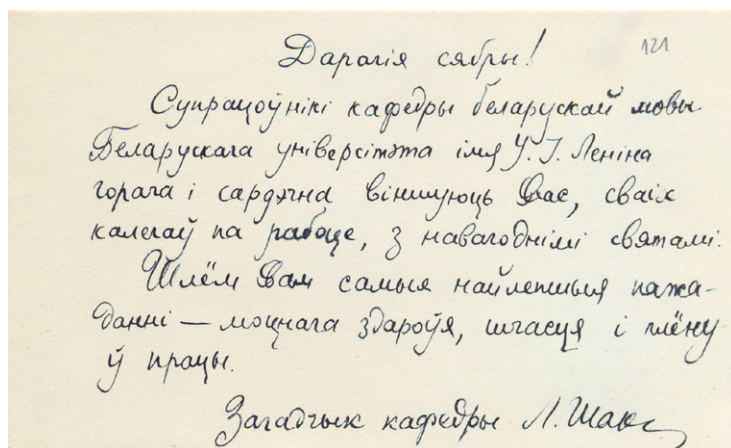 Дарагія сябры!
121
Супрацоўнікі кафедры беларускай мовы
Беларускага універсітэта імя У. І. Леніна
горача і сардэчна віншуюць Вас, сваіх
калегаў па рабоце, з навагоднімі святамі.
Шлём Вам самыя найлепшыя пажа-
данні — моцнага здароўя, шчасця і плёну
ў працы.
Загадчык кафедры Л. Шак